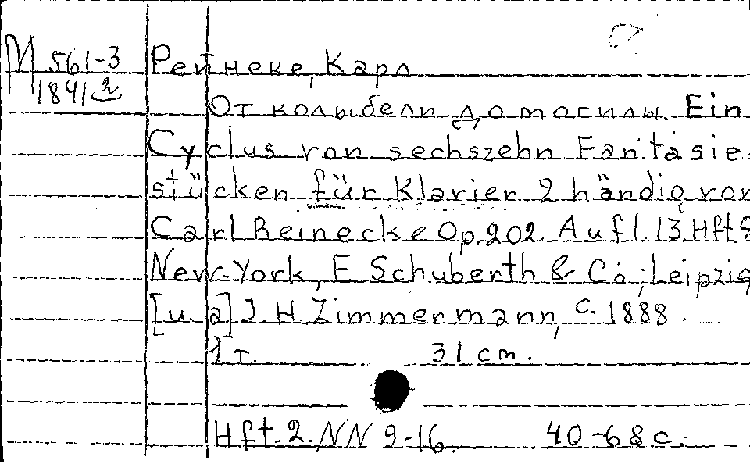 М 561-3
1841
Рейнеке, Карл
От колыбели до могилы. Ein
Cyclus von sechszehn Fantasie-
stücken für Klavier 2 händig von
Carl Reinecke Op. 202. Aufl. 13. Hft
New-York, E Schuberth & Co; Leipzig
[u. a] J. H. Zimmermann, c. 1888.
1 т. 31 cm.
Hft. 2. NN 9-16. 40-68 с.